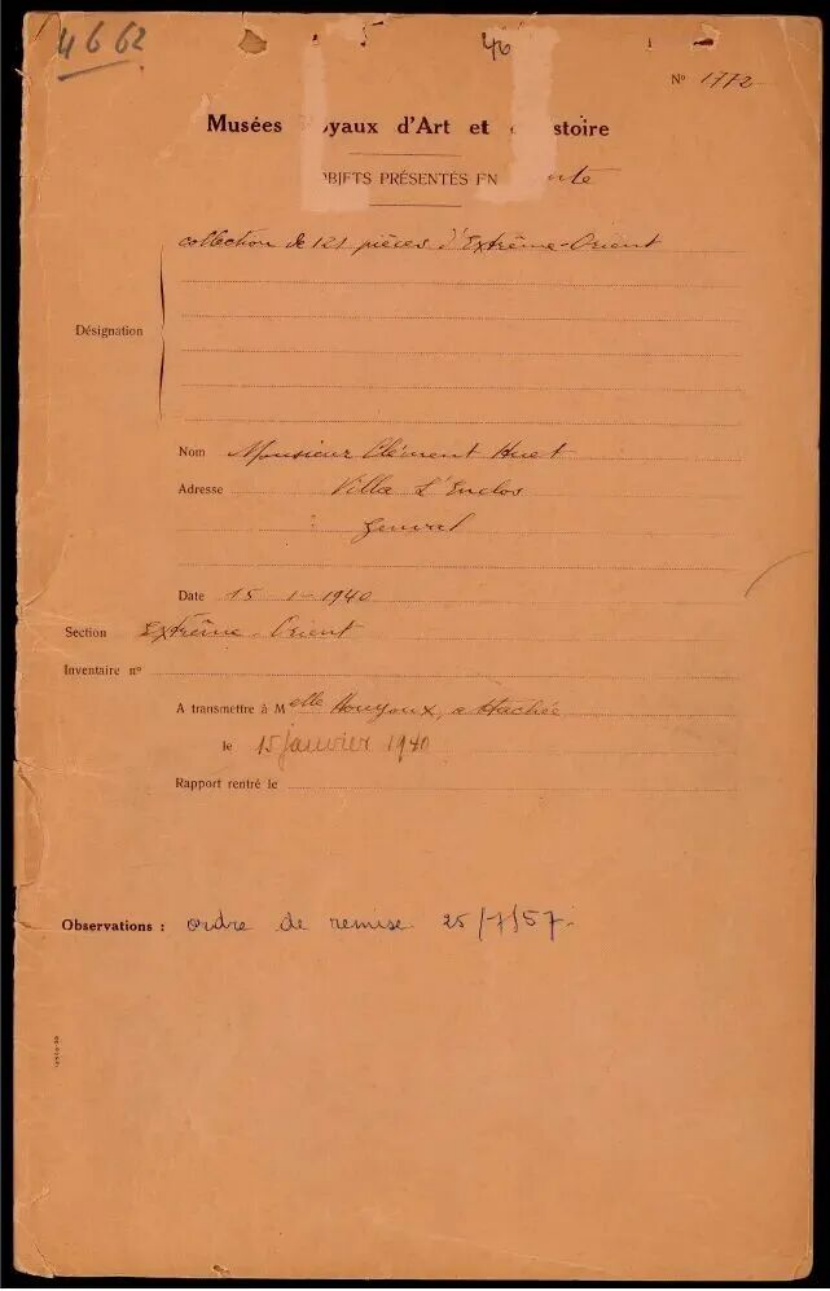 4662
46
Nº 1772
Musées yaux d'Art et stoire
OBJETS PRÉSENTÉS EN
collection de 121 pièces d'Extrême-Orient
Désignation
Nom Monsieur Clément Huet
Adresse Villa L'Enclos
Genval
Date 15-1-1940
Section Extrême-Orient
Inventaire nº
A transmettre à Melle Houyoux, attachée
le 15 janvier 1940
Rapport rentré le
Observations : ordre de remise 25/7/57.